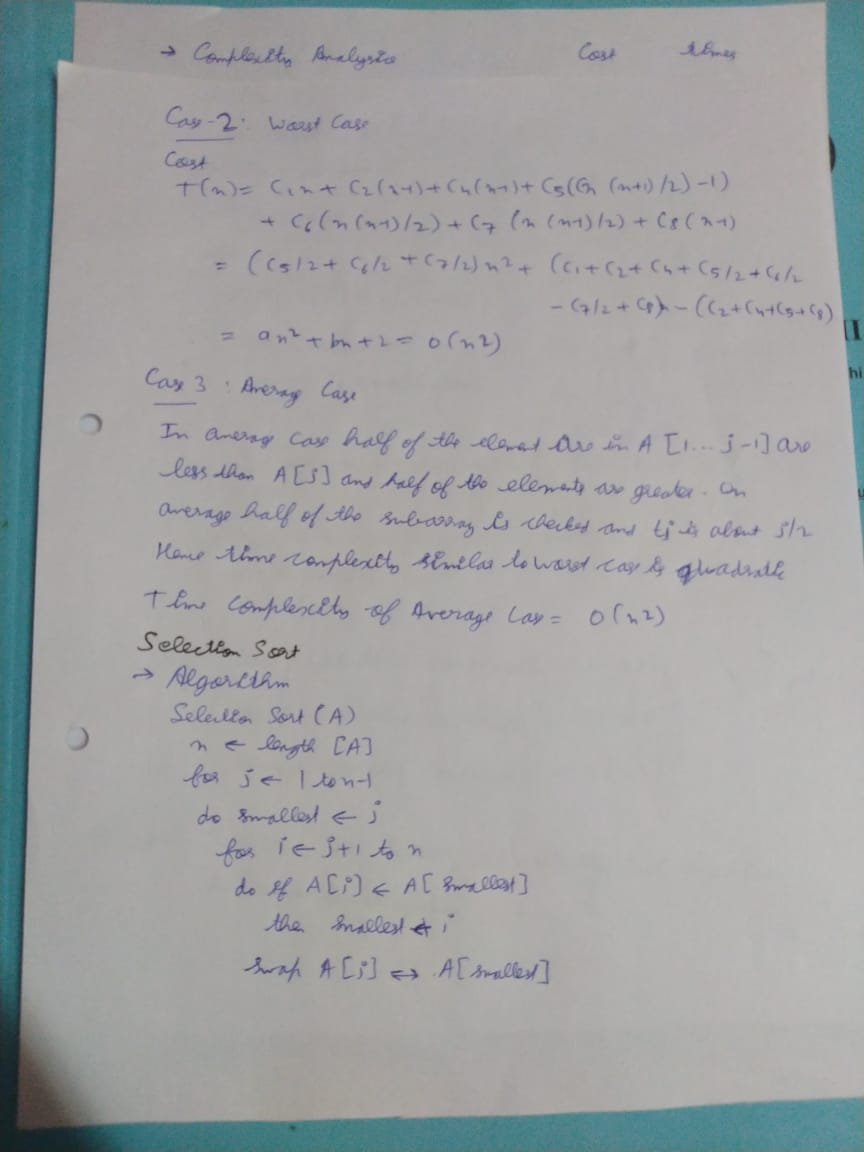 → Complexity Analysis Cost times
Case-2: Worst Case
Cost
T(n) = C1n + C2(n-1) + C4(n-1) + C5((n (n+1)/2) -1)
+ C6(n(n-1)/2) + C7 (n(n-1)/2) + C8(n-1)
= (C5/2 + C6/2 + C7/2)n² + (C1+C2+C4+C5/2+C6/2
- C7/2 + C8)n - (C2+C4+C5+C8)
= an² + bn + 2 = O(n²)
Case 3 : Average Case
In average case half of the element are in A [1... j-1] are
less than A[j] and half of the elements are greater. On
average half of the subarray is checked and tj is about j/2
Hence time complexity similar to worst case is quadratic
Time Complexity of Average Case = O(n²)
Selection Sort
→ Algorithm
Selection Sort (A)
n ← length [A]
for j ← 1 to n-1
do smallest ← j
for i ← j+1 to n
do if A[i] < A[smallest]
then smallest ← i
swap A[j] ↔ A[smallest]
II
hi